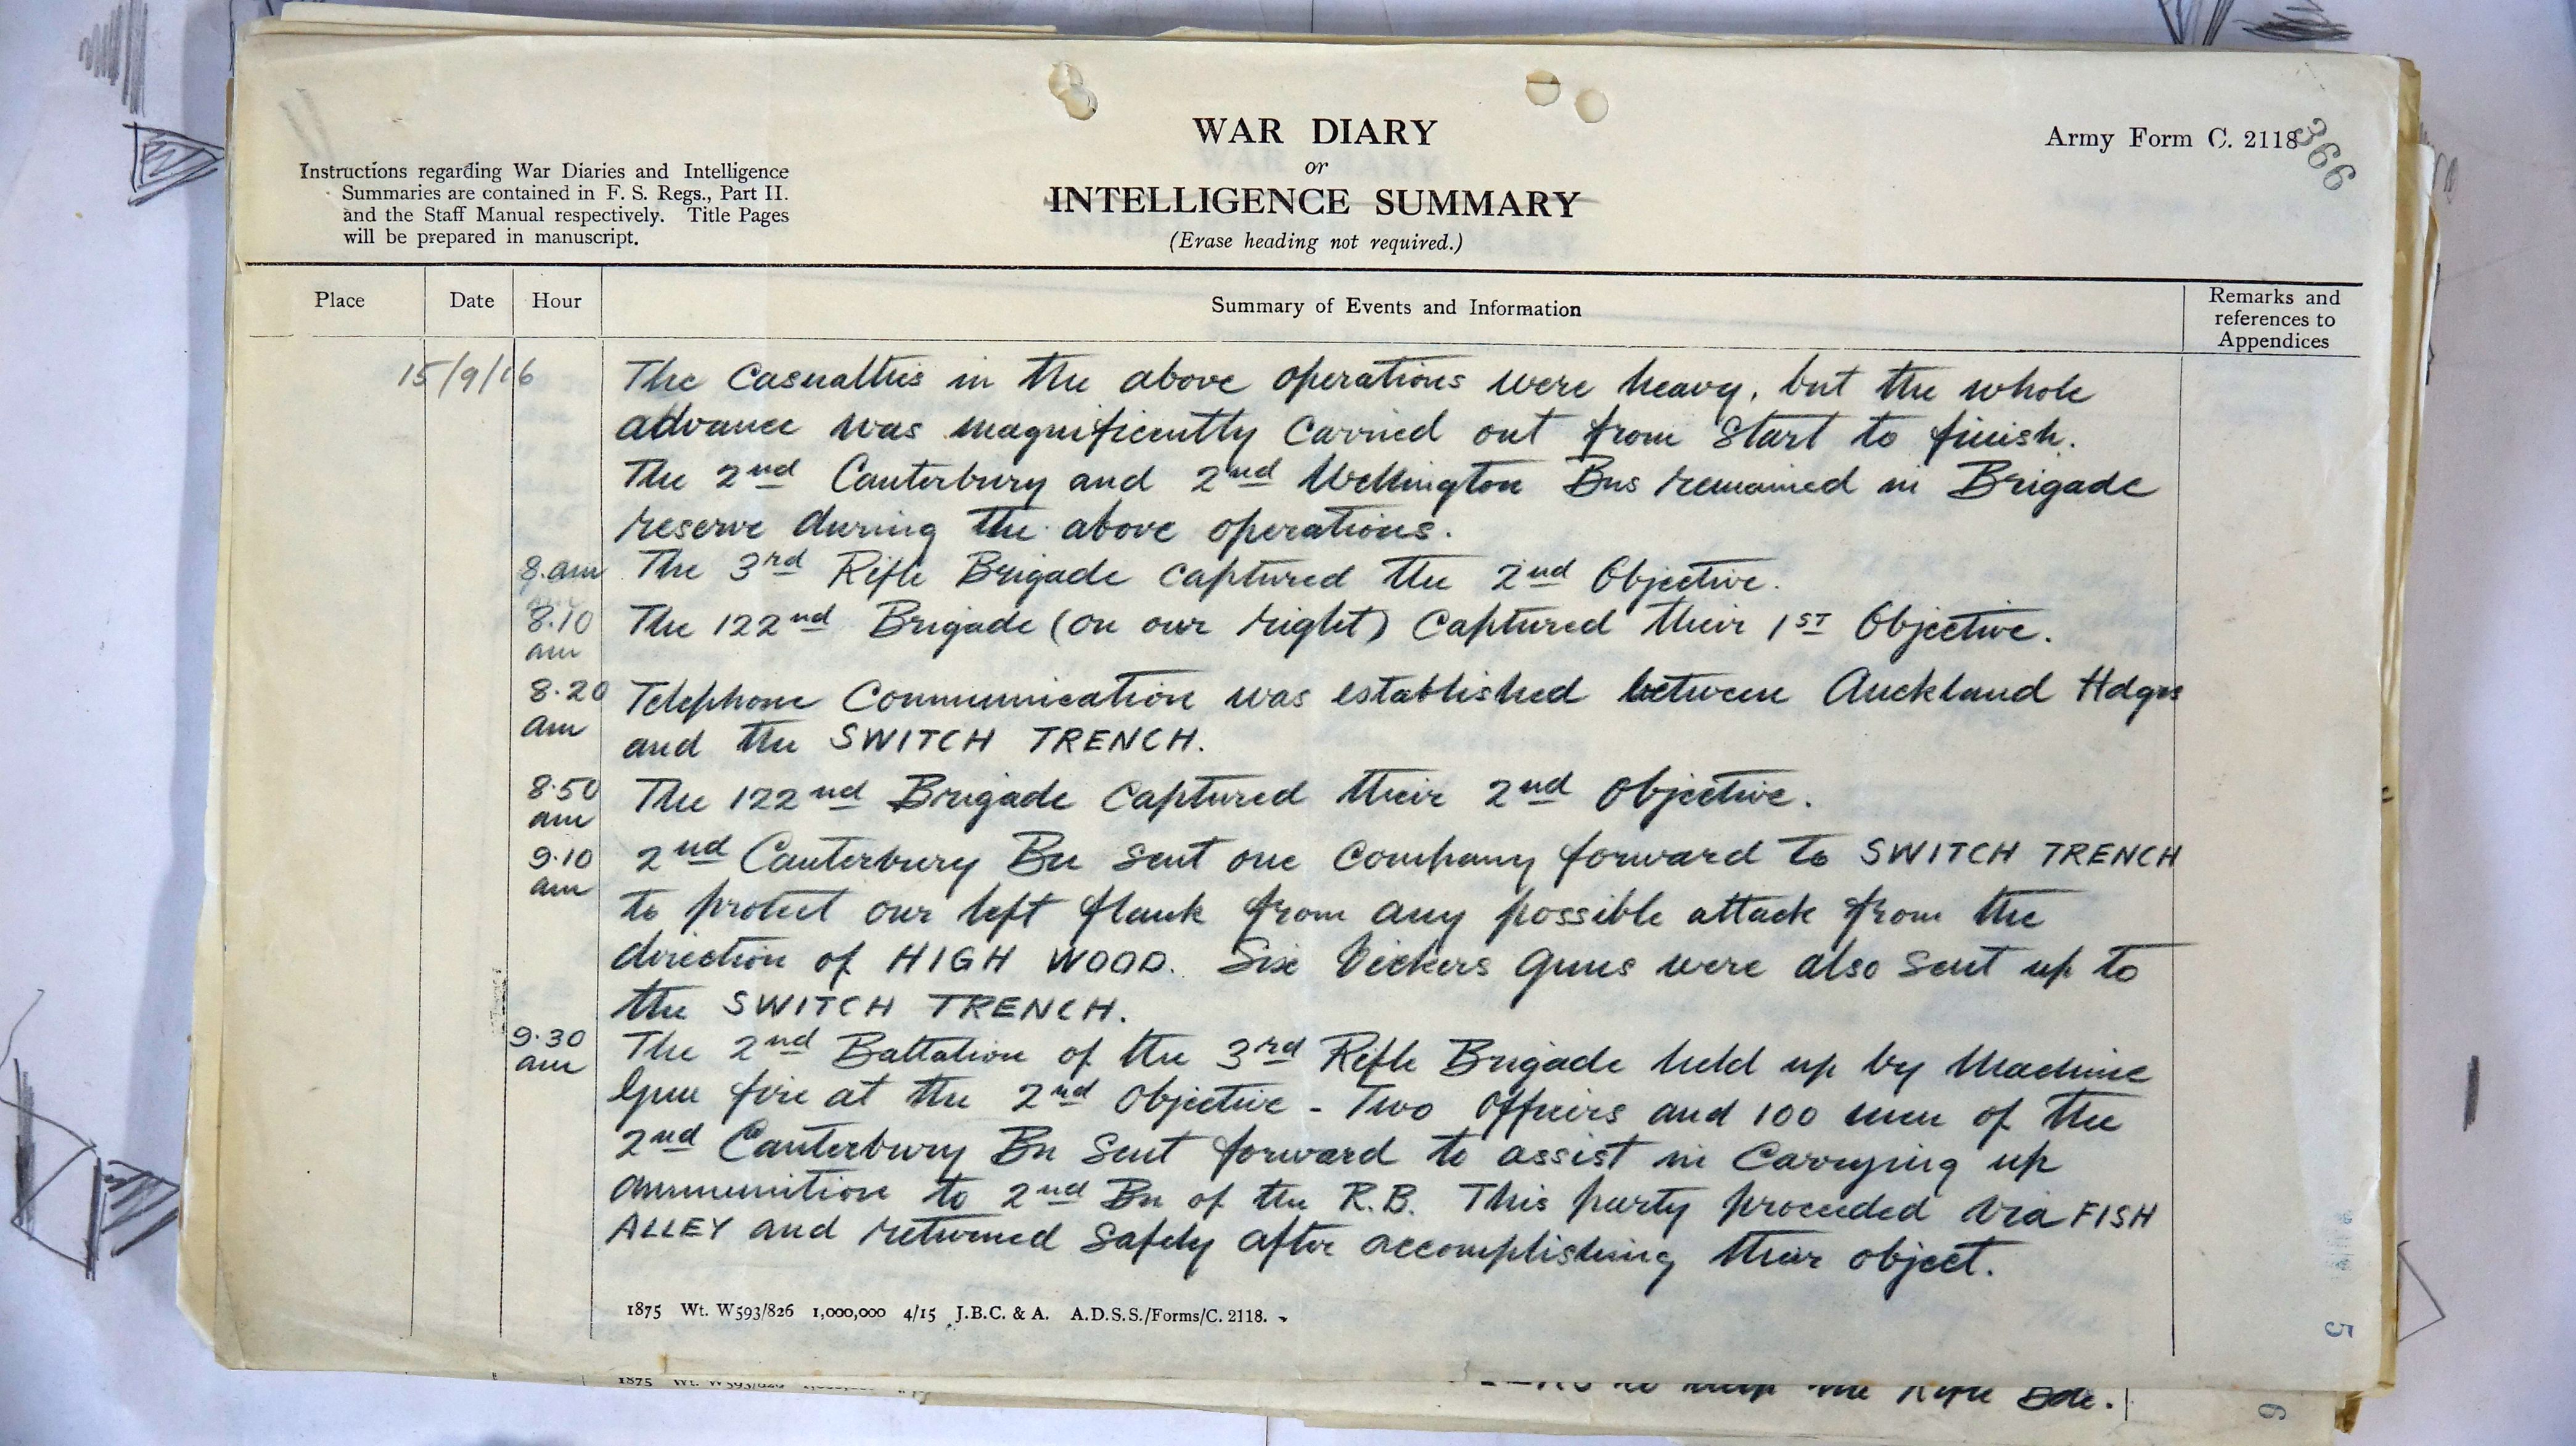 WAR DIARY
or
INTELLIGENCE SUMMARY
(Erase heading not required.)
Army Form C. 2118
366
Instructions regarding War Diaries and Intelligence
Summaries are contained in F. S. Regs., Part II.
and the Staff Manual respectively. Title Pages
will be prepared in manuscript.
Place Date Hour Summary of Events and Information Remarks and references to Appendices
15/9/16 The Casualties in the above operations were heavy, but the whole
advance was magnificently carried out from start to finish.
The 2nd Canterbury and 2nd Wellington Bns remained in Brigade
reserve during the above operations.
8.am The 3rd Rifle Brigade captured the 2nd Objective.
8.10 am The 122nd Brigade (on our right) captured their 1ST Objective.
8.20 am Telephone Communication was established between Auckland Hdqrs
and the SWITCH TRENCH.
8.50 am The 122nd Brigade captured their 2nd Objective.
9.10 am 2nd Canterbury Bn sent one company forward to SWITCH TRENCH
to protect our left flank from any possible attack from the
direction of HIGH WOOD. Six Vickers guns were also sent up to
the SWITCH TRENCH.
9.30 am The 2nd Battalion of the 3rd Rifle Brigade held up by Machine
Gun fire at the 2nd Objective - Two Officers and 100 men of the
2nd Canterbury Bn sent forward to assist in carrying up
ammunition to 2nd Bn of the R.B. This party proceeded via FISH
ALLEY and returned safely after accomplishing their object.
1875 Wt. W593/826 1,000,000 4/15 J.B.C. & A. A.D.S.S./Forms/C. 2118.
5
1875 Wt. W593/826
the Rifle Bde.
6